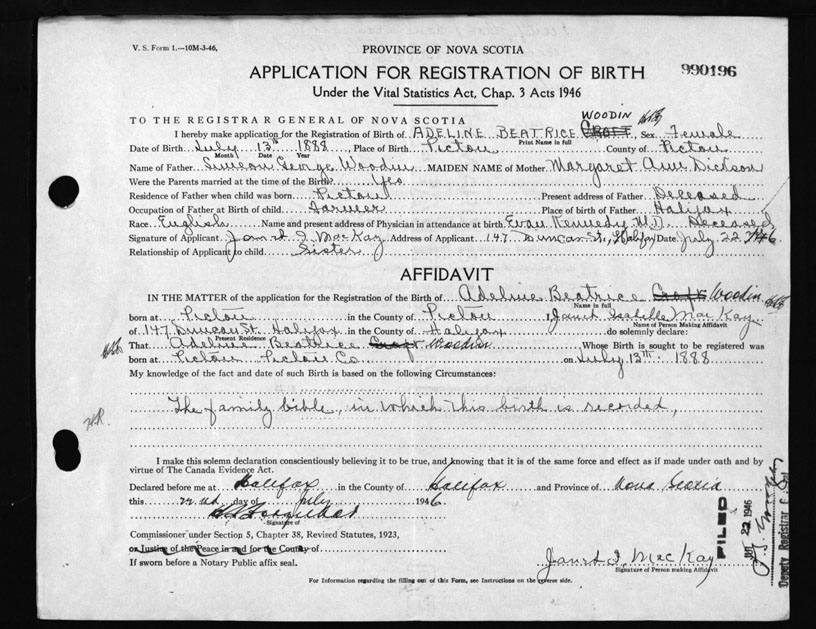 V. S. Form 1.—10M-3-46,
PROVINCE OF NOVA SCOTIA
APPLICATION FOR REGISTRATION OF BIRTH
990196
Under the Vital Statistics Act, Chap. 3 Acts 1946
TO THE REGISTRAR GENERAL OF NOVA SCOTIA
WOODIN
I hereby make application for the Registration of Birth of ADELINE BEATRICE CROFT, Sex Female
Print Name in full
Date of Birth July 13th 1888, Place of Birth Pictou County of Pictou
Month Date Year
Name of Father Simeon George Woodin MAIDEN NAME of Mother Margaret Ann Dickson
Were the Parents married at the time of the Birth? Yes
Residence of Father when child was born Pictou Present address of Father Deceased
Occupation of Father at Birth of child Farmer Place of birth of Father Halifax
Race English Name and present address of Physician in attendance at birth Evan Kennedy M.D. Deceased
Signature of Applicant Janet I MacKay Address of Applicant 147 Duncan St, Halifax Date July 22 1946
Relationship of Applicant to child Sister
AFFIDAVIT
IN THE MATTER of the application for the Registration of Birth of Adeline Beatrice Croft Woodin
Name in full
born at Pictou in the County of Pictou I, Janet Isabelle MacKay
Name of Person Making Affidavit
of 147 Duncan St. Halifax in the County of Halifax do solemnly declare:
Present Residence
That Adeline Beatrice Croft Woodin Whose Birth is sought to be registered was
born at Pictou Pictou Co. on July 13th 1888
My knowledge of the fact and date of such Birth is based on the following Circumstances:
The family bible, in which this birth is recorded,
I make this solemn declaration conscientiously believing it to be true, and knowing that it is of the same force and effect as if made under oath and by
virtue of The Canada Evidence Act.
Declared before me at Halifax in the County of Halifax and Province of Nova Scotia
this 22nd day of July 1946
Signature of
Commissioner under Section 5, Chapter 38, Revised Statutes, 1923,
or Justice of the Peace in and for the County of
If sworn before a Notary Public affix seal.
Janet I MacKay
Signature of Person making Affidavit
For Information regarding the filling out of this Form, see Instructions on the reverse side.
FILED
JUL 22 1946
Deputy Registrar